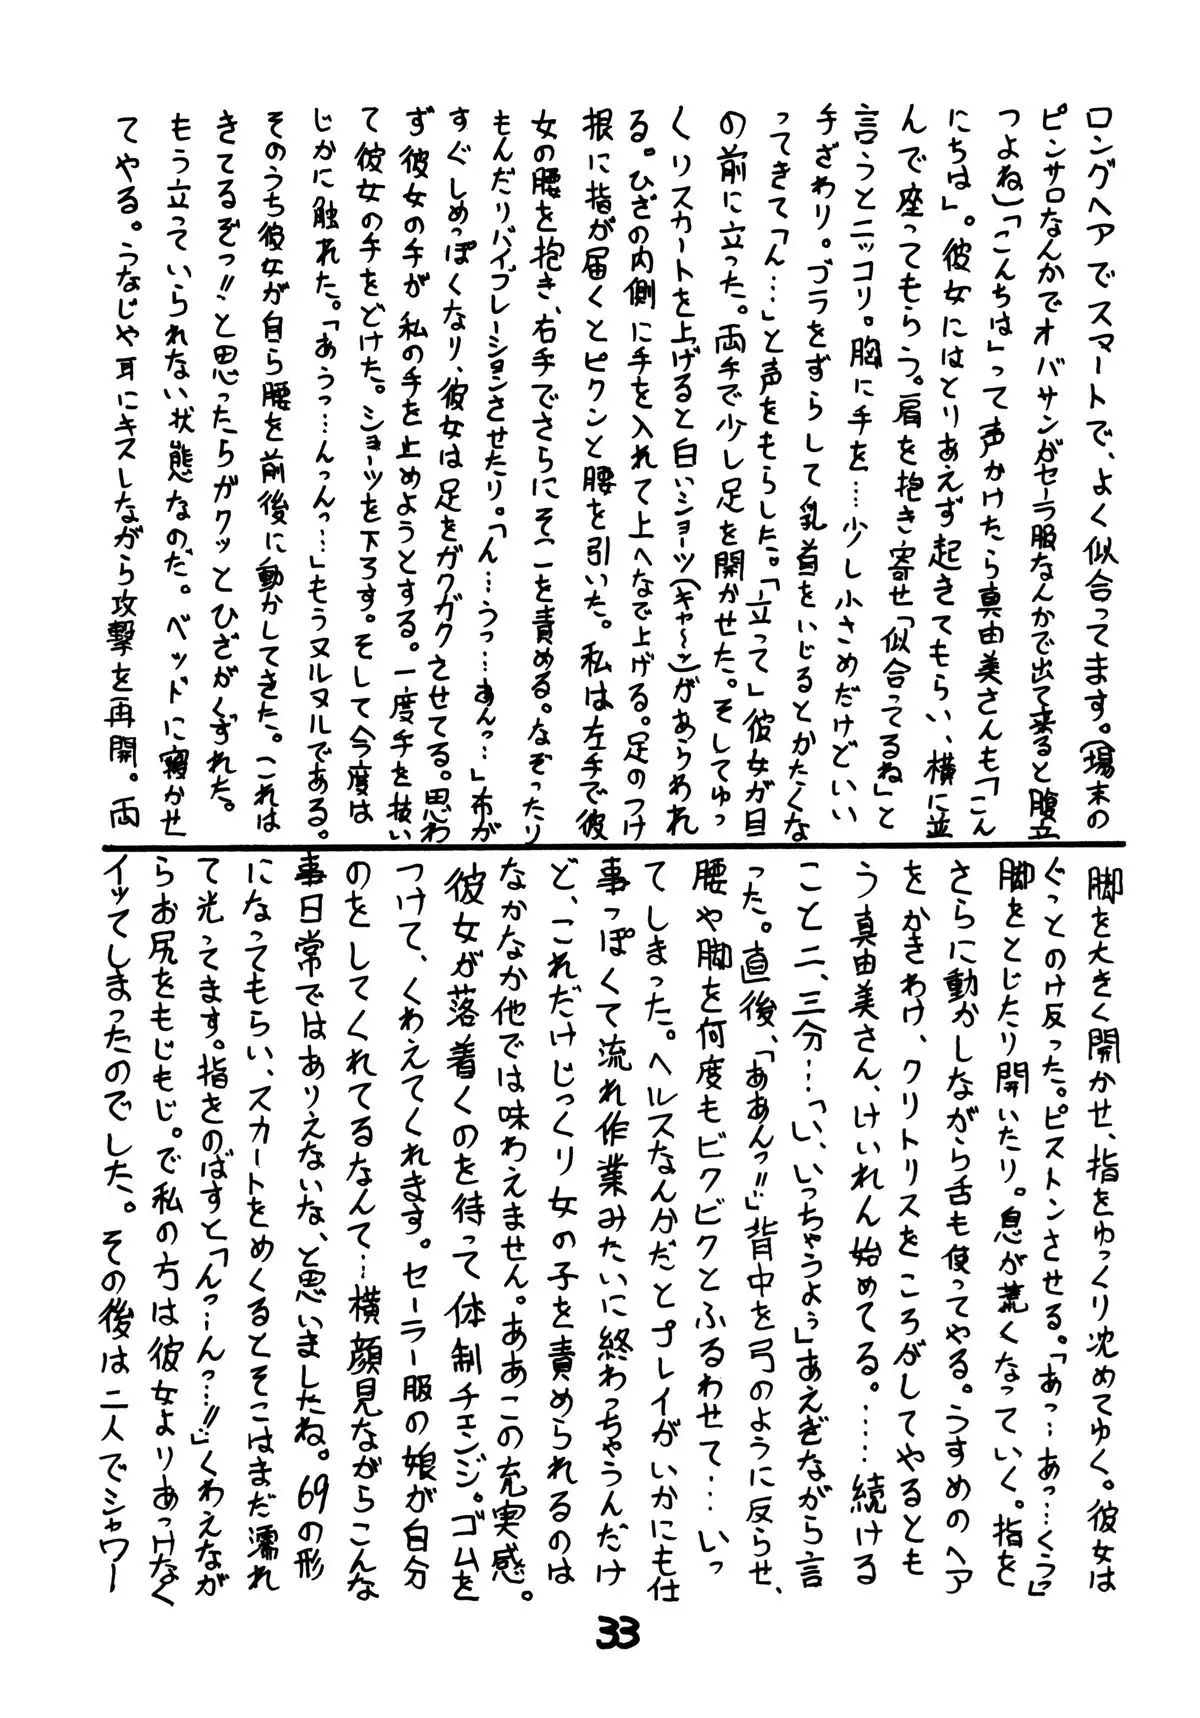 ロングヘアでスマートで、よく似合ってます。(場末の
ピンサロなんかでオバサンがセーラ服なんかで出て来ると腹立
つよね)「こんちは」って声かけたら真由美さんも「こん
にちは」。彼女にはとりあえず起きてもらい、横に並
んで座ってもらう。肩を抱き寄せ「似合ってるね」と
言うとニッコリ。胸に手を……少し小さめだけどいい
手ざわり。ブラをずらして乳首をいじるとかたくな
ってきて「ん…」と声をもらした。「立って」彼女が目
の前に立った。両手で少し足を開かせた。そしてゆっ
くりスカートを上げると白いショーツ(キャ〜ッ)があらわれ
る。ひざの内側に手を入れて上へなで上げる。足のつけ
根に指が届くとピクンと腰を引いた。私は左手で彼
女の腰を抱き、右手でさらにそこを責める。なぞったり
もんだりバイブレーションさせたり。「ん…うっ…あんっ…」布が
すぐしめっぽくなり、彼女は足をガクガクさせてる。思わ
ず彼女の手が私の手を止めようとする。一度手を抜い
て彼女の手をどけた。ショーツを下ろす。そして今度は
じかに触れた。「あうっ…んっんっ…」もうヌルヌルである。
そのうち彼女が自ら腰を前後に動かしてきた。これは
きてるぞっ!!と思ったらガクッとひざがくずれた。
もう立っていられない状態なのだ。ベッドに寝かせ
てやる。うなじや耳にキスしながら攻撃を再開。両
脚を大きく開かせ、指をゆっくり沈めてゆく。彼女は
ぐっとのけ反った。ピストンさせる。「あっ…あっ…くうっ」
脚をとじたり開いたり。息が荒くなっていく。指を
さらに動かしながら舌も使ってやる。うすめのヘア
をかきわけ、クリトリスをころがしてやるとも
う真由美さん、けいれん始めてる。……続ける
こと二、三分…「い、いっちゃうよぅ」あえぎながら言
った。直後、「ああんっ!!」背中を弓のように反らせ、
腰や脚を何度もビクビクとふるわせて…いっ
てしまった。ヘルスなんかだとプレイがいかにも仕
事っぽくて流れ作業みたいに終わっちゃうんだけ
ど、これだけじっくり女の子を責められるのは
なかなか他では味わえません。ああこの充実感。
彼女が落着くのを待って体制チェンジ。ゴムを
つけて、くわえてくれます。セーラー服の娘が自分
のをしてくれてるなんて…横顔見ながらこんな
事日常ではありえないな、と思いましたね。69の形
になってもらい、スカートをめくるとそこはまだ濡れ
て光ってます。指をのばすと「んっ…んっ…!!」くわえなが
らお尻をもじもじ。で私の方は彼女よりあっけなく
イッてしまったのでした。その後は二人でシャワー
33